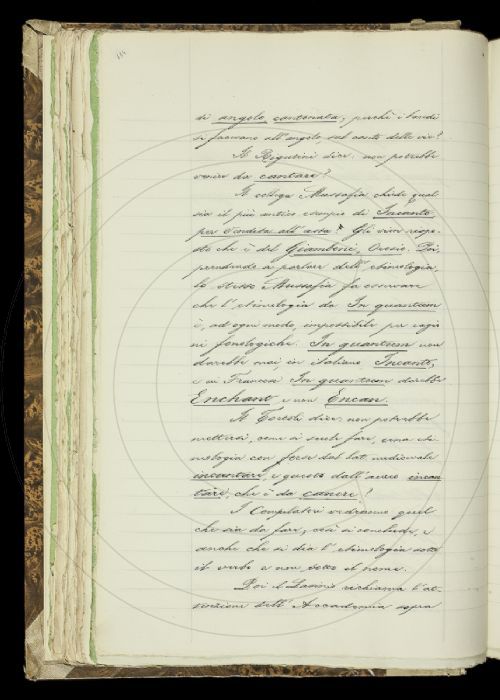 184
di angolo cantonata, perché i bandi
si facevano all'angolo, sul canto delle vie?
Il Rigutini dice: non potrebbe
venire da cantare?
Il collega Mussafia chiede qual
sia il più antico esempio di Incanto
per Vendita all'asta. Gli vien rispo-
sto che è del Giamboni, Orosio. Poi,
prendendo a parlare dell'etimologia,
lo stesso Mussafia fa osservare
che l'etimologia da In quantum
è, ad ogni modo, impossibile per ragio
ni fonologiche. In quantum non
darebbe mai, in italiano Incanto,
e in Francese In quantum darebbe
Enchant, e non Encan.
Il Tortoli dice: non potrebbe
mettersi, come si suole fare, una eti-
mologia con forse dal lat. medievale
incantare, e questo dall'antico incan
tare, che è da canere?
I Compilatori vedranno quel
che sia da fare, così si conclude, e
anche che si dia l'etimologia sotto
il verbo e non sotto il nome.
Poi il Lasinio richiama l'at-
tenzione dell'Accademia sopra